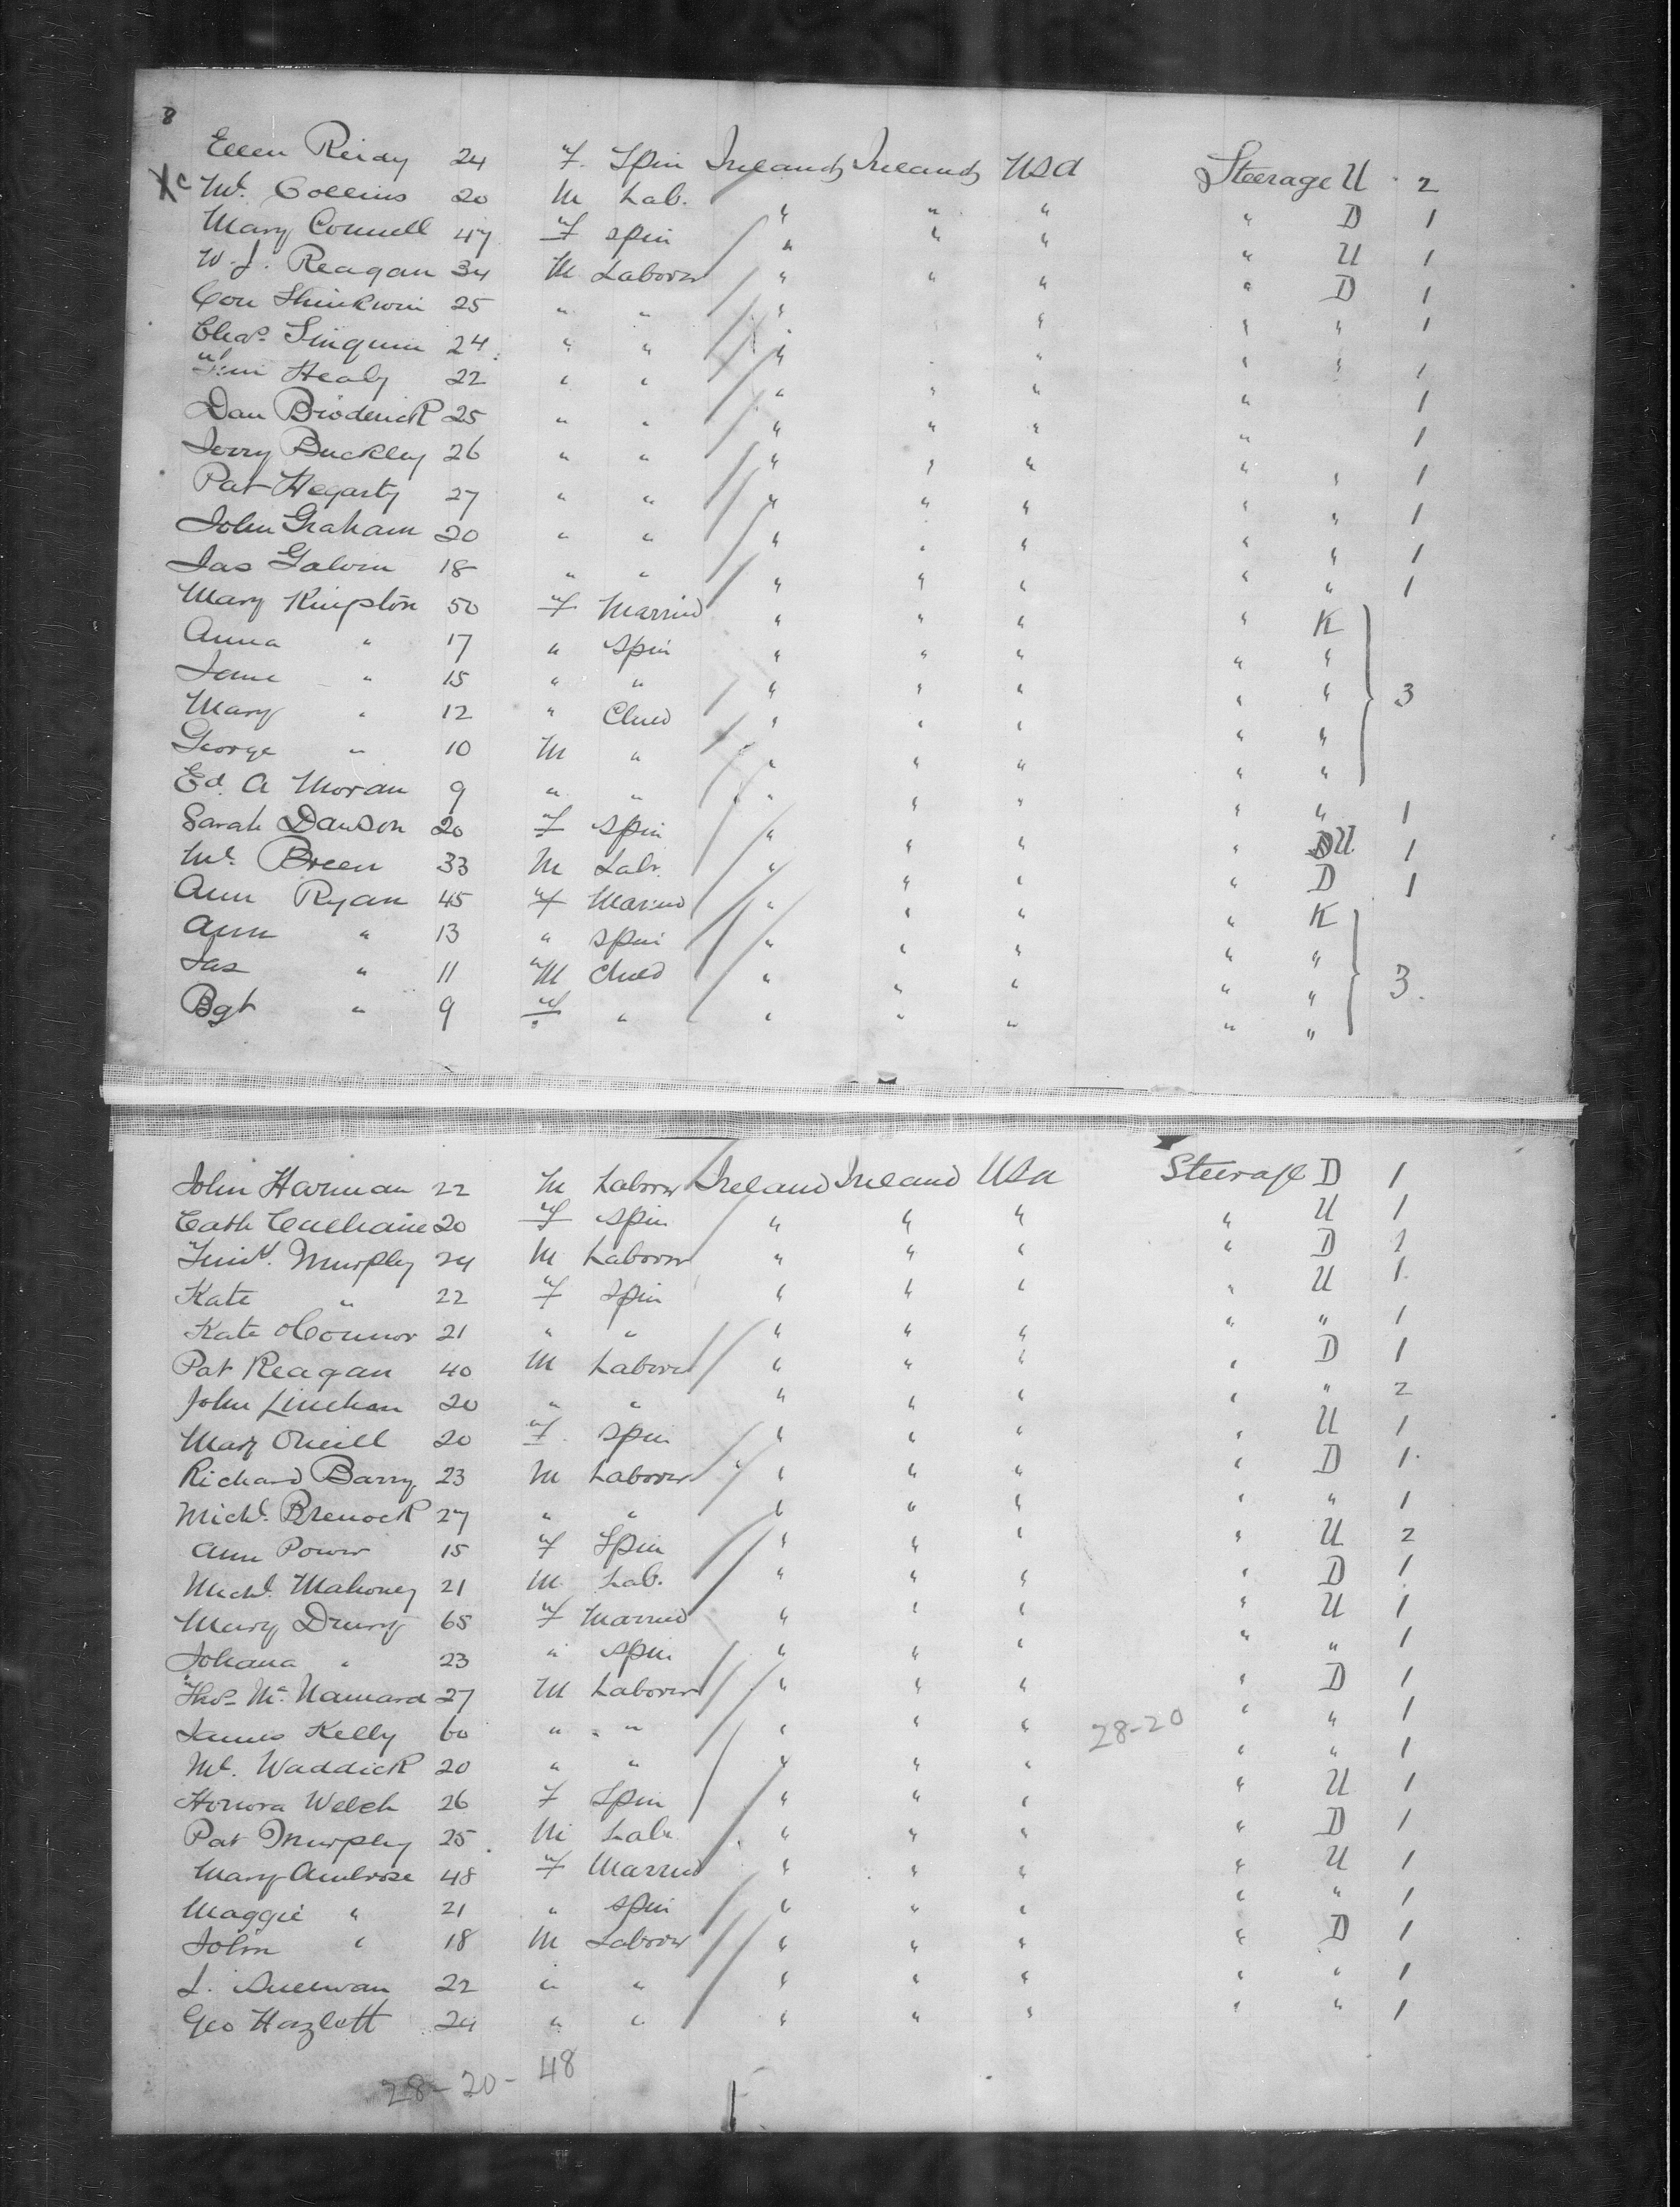 8
Ellen Reidy 24 F. Spin Ireland Ireland USA Steerage U 2
Xc Ml. Collins 20 M Lab. " " " " D 1
Mary Connell 47 F Spin " " " " U 1
W. J. Reagan 34 M Laborer " " " " D 1
Con 25 " " " " " " 1
Chas. 24 " " " " " " 1
Tim Healy 22 " " " " " " 1
Dan Broderick 25 " " " " " " 1
Jerry Buckley 26 " " " " " " " 1
Pat Hegarty 27 " " " " " " " 1
John Graham 20 " " " " " " " 1
Jas Galvin 18 " " " " " " " 1
Mary Kingston 50 F Married " " " " K
Anna " 17 " Spin " " " " "
Jane " 15 " " " " " " " 3
Mary " 12 " Child " " " " "
George " 10 M " " " " " "
Ed. A Moran 9 " " " " " " " 1
Sarah Dawson 20 F Spin " " " " U 1
Ml. Breen 33 M Labr. " " " " D 1
Ann Ryan 45 F Married " " " " K
Ann " 13 " Spin " " " " "
Jas " 11 M Child " " " " " 3.
Bgt " 9 F " " " " " "
John Harman 22 M Laborer Ireland Ireland USA Steerage D 1
Cath Culhane 20 F Spin " " " " U 1
Timt. Murphy 24 M Laborer " " " " D 1
Kate " 22 F Spin " " " " U 1.
Kate OConnor 21 " " " " " " " 1
Pat Reagan 40 M Laborer " " " " D 1
John Linehan 20 " " " " " " " 2
Mary ONeill 20 F. Spin " " " " U 1
Richard Barry 23 M Laborer " " " " D 1.
Michl. Brenock 27 " " " " " " " 1
Ann Power 15 F Spin " " " " U 2
Michl. Mahoney 21 M. Lab. " " " " D 1
Mary Drury 65 F Married " " " " U 1
Johana " 23 " Spin " " " " " 1
Thos. McNamara 27 M Laborer " " " " D 1
James Kelly 60 " " " " " 28-20 " " 1
Ml. Waddick 20 " " " " " " " 1
Honora Welch 26 F Spin " " " " U 1
Pat Murphy 25 M Labr " " " " D 1
Mary Ambrose 48 F Married " " " " U 1
Maggie " 21 " Spin " " " " " 1
John " 18 M Laborer " " " " D 1
J. Sullivan 22 " " " " " " " 1
Geo Hazlett 24 " " " " " " " 1
28-20- 48